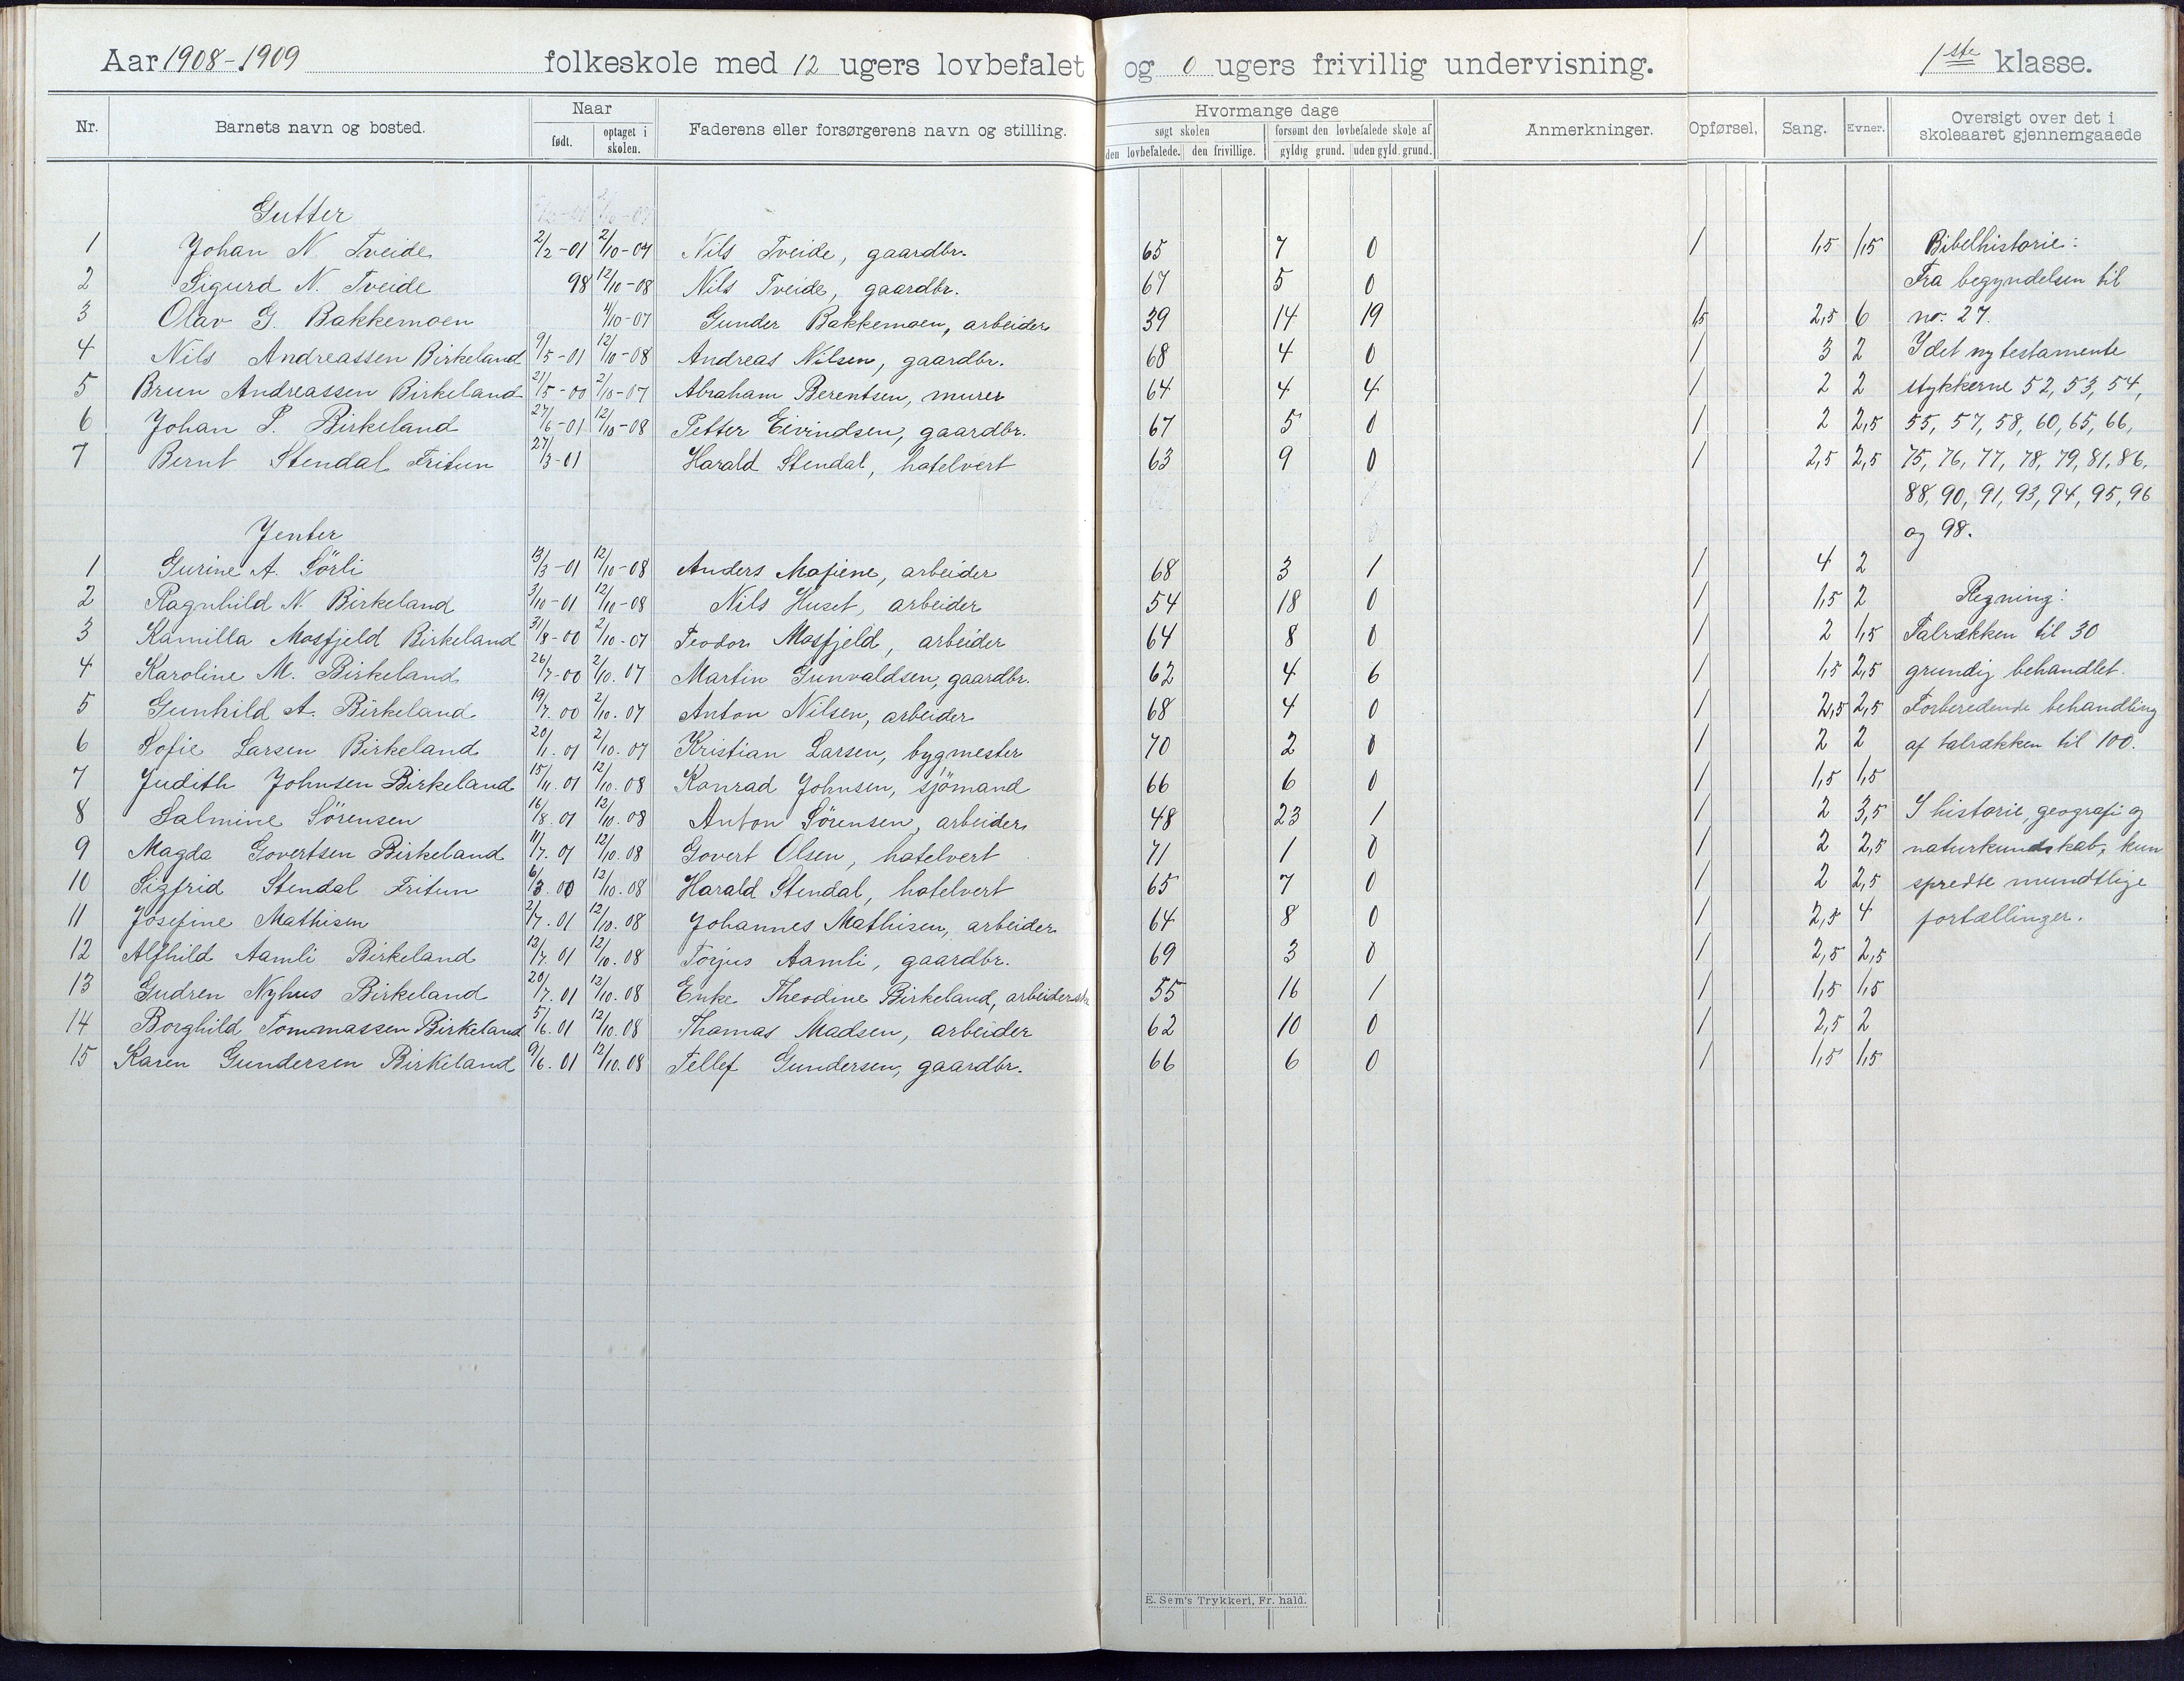 Aar 1908-1909 folkeskole med 12 ugers lovbefalet og 0 ugers frivillig undervisning. 1ste klasse.
Nr. Barnets navn og bosted. Naar født. optaget i skolen. Faderens eller forsørgerens navn og stilling. Hvormange dage søgt skolen den lovbefalede. den frivillige. forsømt den lovbefalede skole af gyldig grund. uden gyld. grund. Anmerkninger. Opførsel. Sang. Evner. Oversigt over det i skoleaaret gjennemgaaede
Gutter
1 Johan N. Tveide 2/2-01 2/10-07 Nils Tveide, gaardbr. 65 7 0 1 1,5 1,5 Bibelhistorie:
2 Sigurd N. Tveide 98 12/10-08 Nils Tveide, gaardbr. 67 5 0 Fra begyndelsen til
3 Olav G. Bakkemoen 4/10-07 Gunder Bakkemoen, arbeider 39 14 19 1,5 2,5 6 no. 27.
4 Nils Andreassen Birkeland 9/5-01 12/10-08 Andreas Nilsen, gaardbr. 68 4 0 1 3 2 I det ny testamente
5 Brun Andreassen Birkeland 21/5-00 2/10-07 Abraham Berentsen, murer 64 4 4 1 2 2 stykkerne 52, 53, 54,
6 Johan P. Birkeland 27/6-01 12/10-08 Petter Eivindsen, gaardbr. 67 5 0 1 2 2,5 55, 57, 58, 60, 65, 66,
7 Bernt Stendal Fritun 27/3-01 Harald Stendal, hotelvert 63 9 0 1 2,5 2,5 75, 76, 77, 78, 79, 81, 86,
88, 90, 91, 93, 94, 95, 96
Jenter og 98.
1 Gurine A. Sörli 13/3-01 12/10-08 Anders Mofiene, arbeider 68 3 1 1 4 2
2 Ragnhild N. Birkeland 3/10-01 12/10-08 Nils Huset, arbeider 54 18 0 1 1,5 2 Regning:
3 Kamilla Mosfjeld Birkeland 31/8-00 2/10-07 Teodor Mosfjeld, arbeider 64 8 0 1 2 1,5 Talrækken til 30
4 Karoline M. Birkeland 26/7-00 2/10.07 Martin Gunvaldsen, gaardbr. 62 4 6 1 1,5 2,5 grundig behandlet.
5 Gunhild A. Birkeland 19/7.00 2/10.07 Anton Nilsen, arbeider 68 4 0 1 2,5 2,5 Forberedende behandling
6 Sofie Larsen Birkeland 20/1.01 2/10.07 Kristian Larsen, bygmester 70 2 0 1 2 2 af talrækken til 100.
7 Judith Johnsen Birkeland 15/11.01 12/10.08 Konrad Johnsen, sjömand 66 6 0 1 1,5 1,5
8 Salmine Sörensen 16/8.01 12/10.08 Anton Sörensen, arbeider 48 23 1 1 2 3,5 I historie, geografi og
9 Magda Govertsen Birkeland 11/7.01 12/10.08 Govert Olsen, hotelvert 71 1 0 1 2 2,5 naturkundskab, kun
10 Sigfrid Stendal Fritun 6/3.00 12/10.08 Harald Stendal, hotelvert 65 7 0 1 2 2,5 spredte mundtlige
11 Josefine Mathisen 2/7.01 12/10.08 Johannes Mathisen, arbeider 64 8 0 1 2,5 4 fortællinger.
12 Alfhild Aamli Birkeland 12/7.01 12/10.08 Torjus Aamli, gaardbr. 69 3 0 1 2,5 2,5
13 Gudren Nyhus Birkeland 20/7.01 12/10.08 Enke Theodine Birkeland, arbeiderske 55 16 1 1 1,5 1,5
14 Borghild Tommassen Birkeland 5/6.01 12/10.08 Thomas Madsen, arbeider 62 10 0 1 2,5 2
15 Karen Gundersen Birkeland 9/6.01 12/10.08 Tellef Gundersen, gaardbr. 66 6 0 1 1,5 1,5
E. Sem's Trykkeri, Fr. hald.